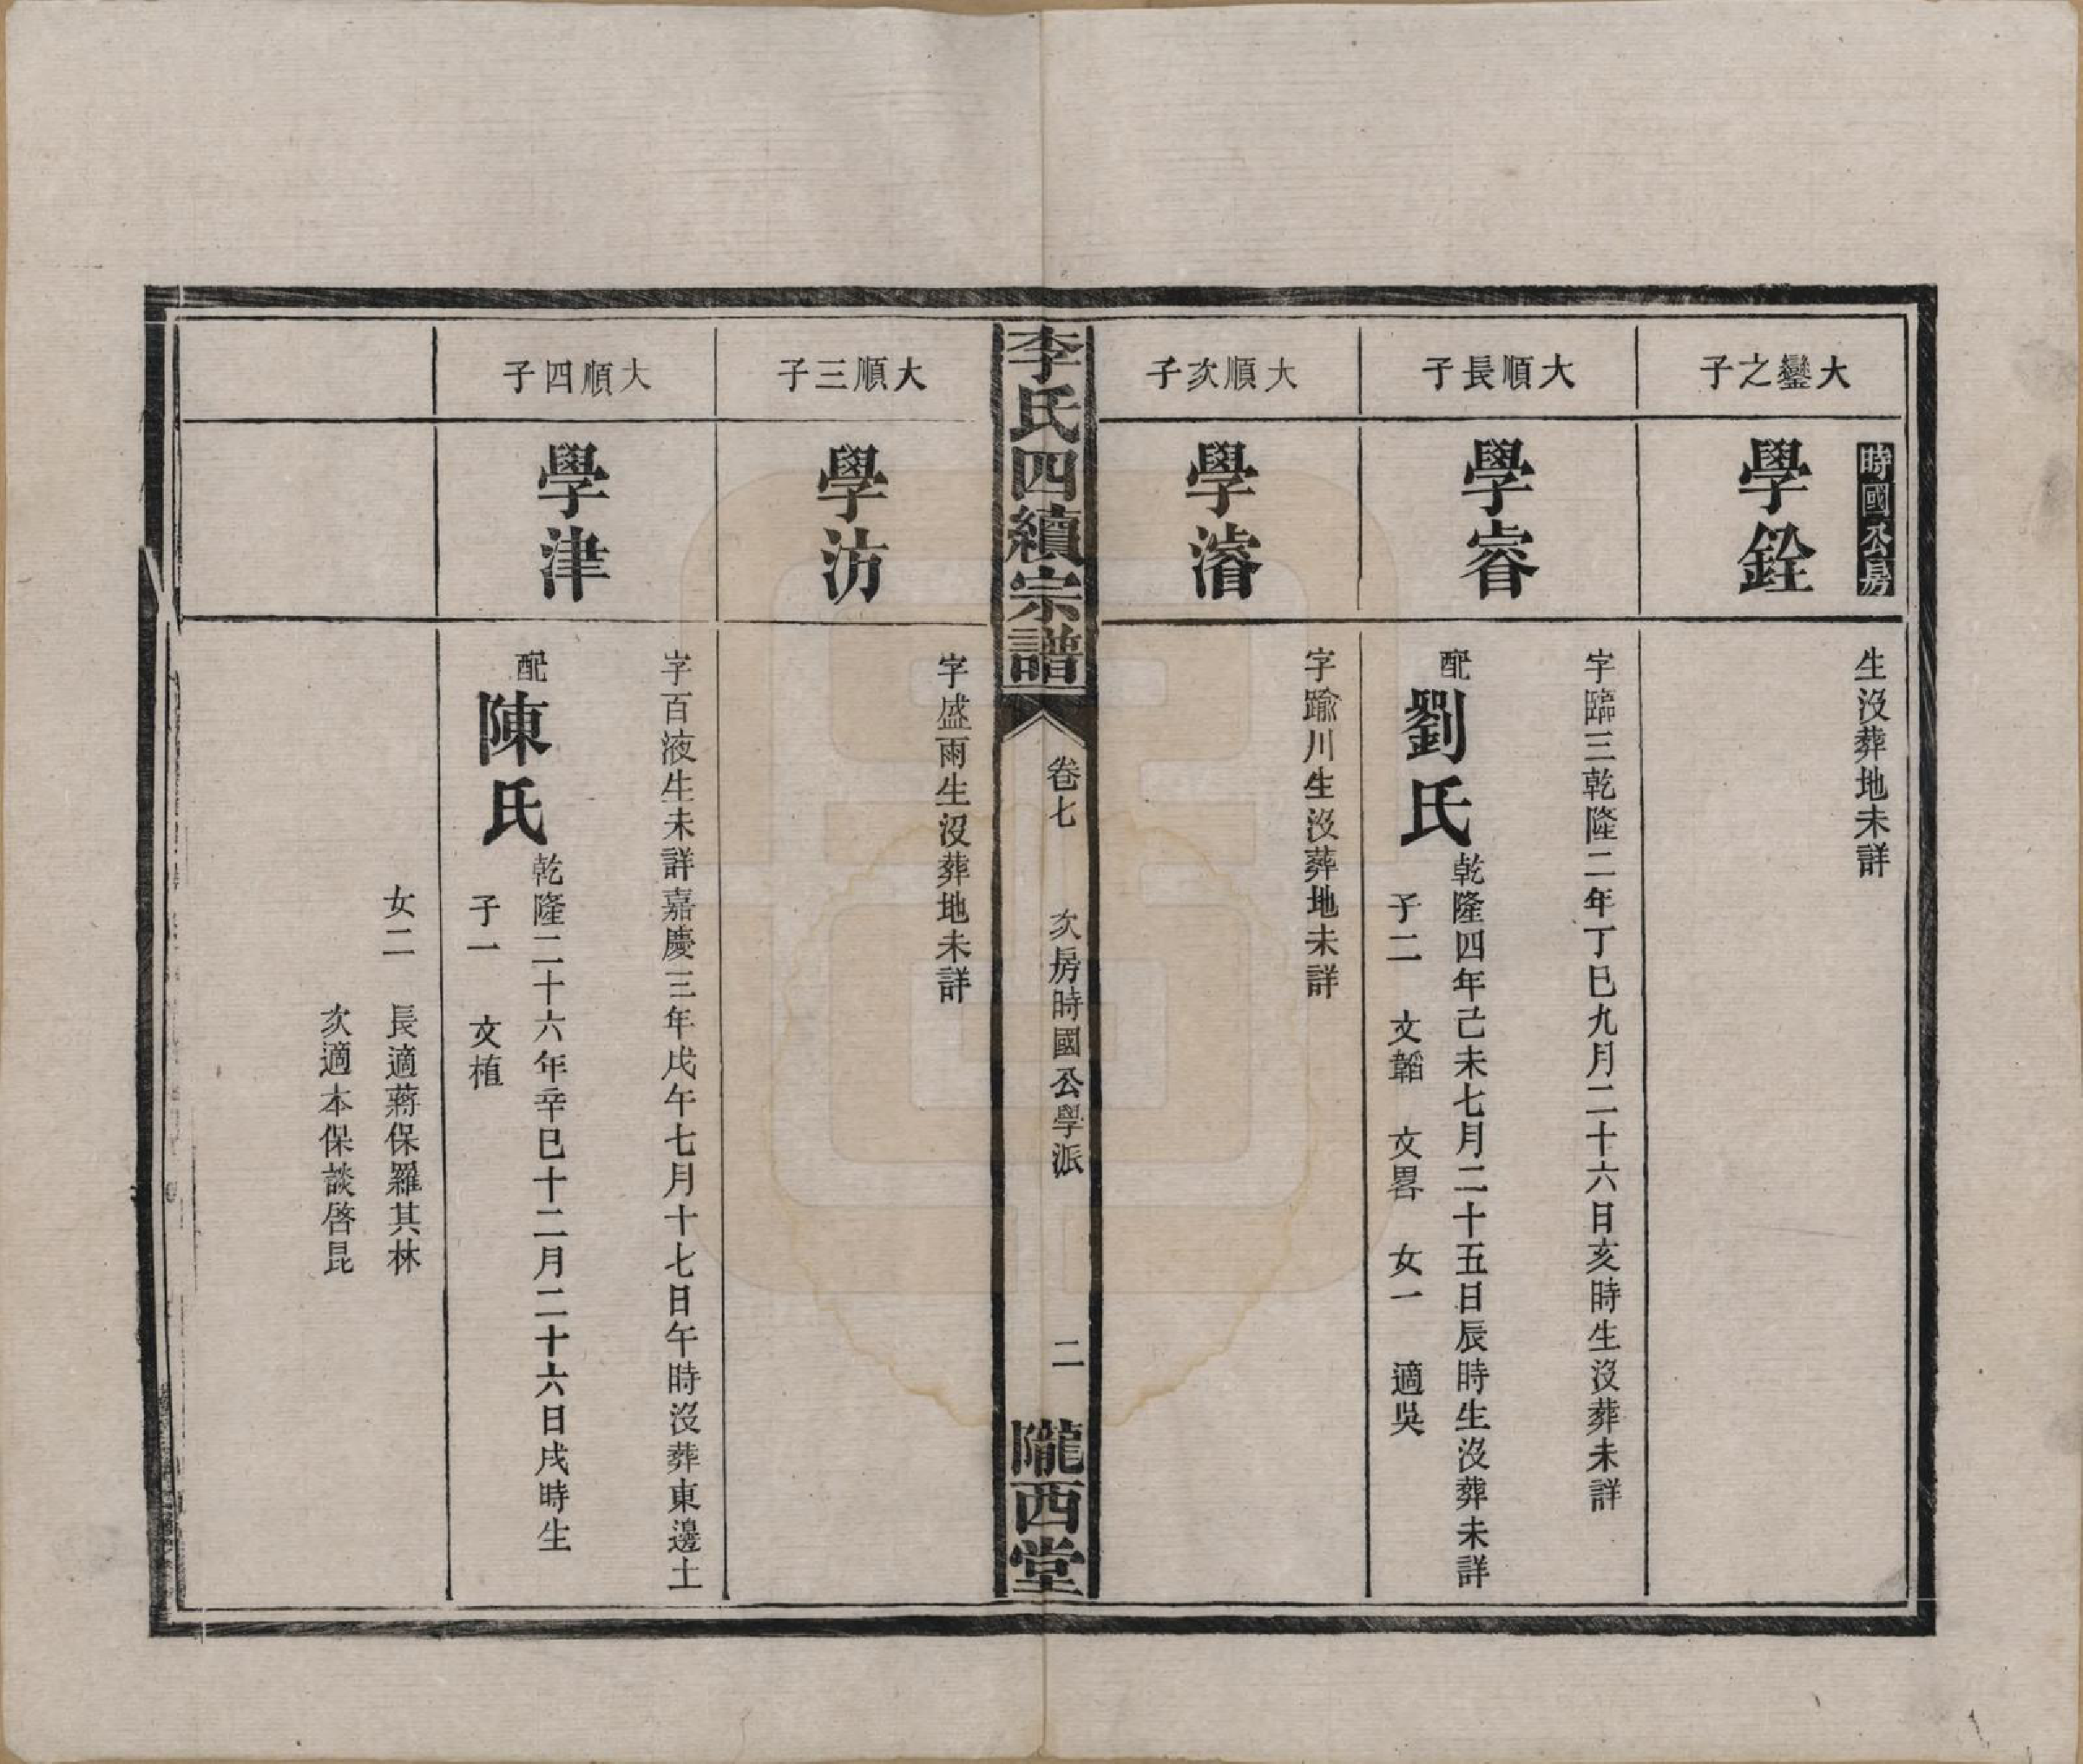 時國公房
大鑾之子
學銓
生沒葬地未詳
大順長子
學睿
字臨三乾隆二年丁巳九月二十六日亥時生沒葬未詳
配劉氏乾隆四年己未七月二十五日辰時生沒葬未詳
子二 文韜 文畧 女一 適吳
大順次子
學濬
字踰川生沒葬地未詳
李氏四續宗譜
卷七 次房時國公學派 二
隴西堂
大順三子
學汸
字盛雨生沒葬地未詳
大順四子
學津
字百液生未詳嘉慶三年戊午七月十七日午時沒葬東邊土
配陳氏乾隆二十六年辛巳十二月二十六日戌時生
子一 文植
女二 長適蔣保羅其林
次適本保談啓昆